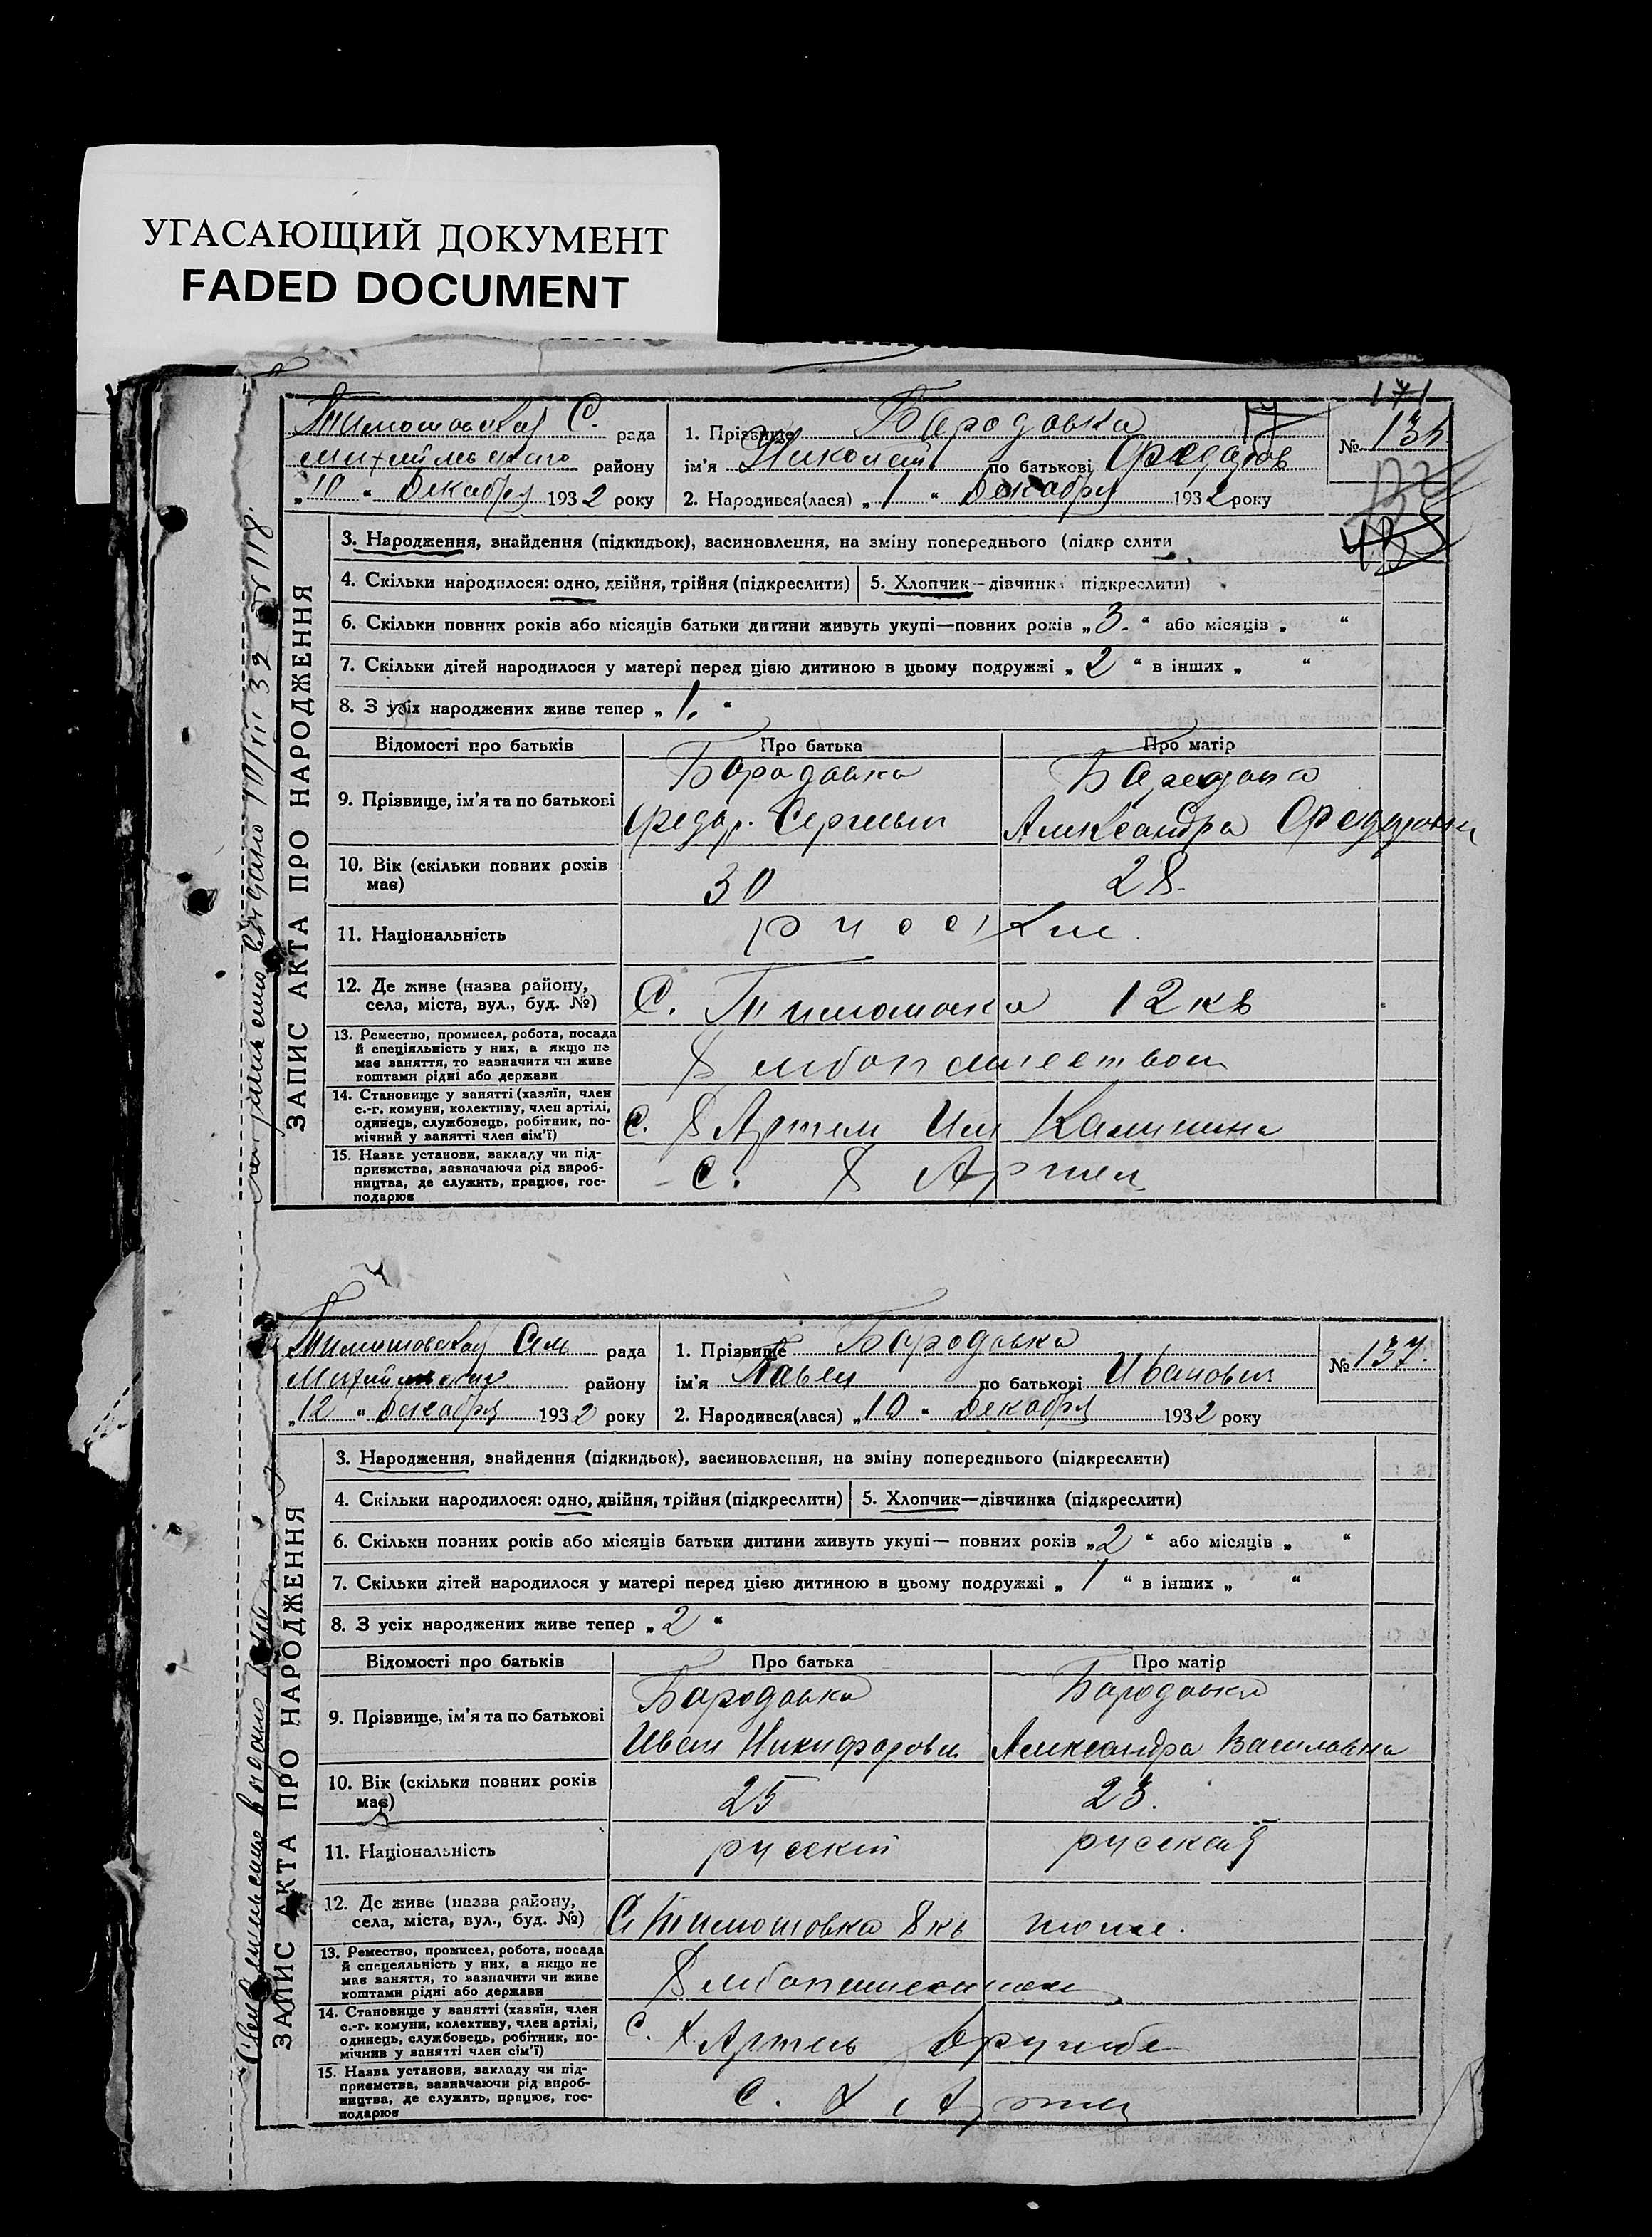 УГАСАЮЩИЙ ДОКУМЕНТ
FADED DOCUMENT
171
Тимошовская С. рада
Михайловского району
„10 “ Декабря 1932 року
1. Прізвище Бародавка
ім'я Николай по батькові Федоров
2. Народився(лася) „1 “ Декабря 1932 року
№ 136
ЗАПИС АКТА ПРО НАРОДЖЕННЯ
3. Народження, знайдення (підкидьок), засиновлення, на зміну попереднього (підкр слити
4. Скільки народилося: одно, двійня, трійня (підкреслити) 5. Хлопчик—дівчинка підкреслити)
6. Скільки повних років або місяців батьки дитини живуть укупі—повних років „3. “ або місяців „ “
7. Скільки дітей народилося у матері перед цією дитиною в цьому подружжі „ 2 “ в інших „ “
8. З усіх народжених живе тепер „ 1. “
Відомості про батьків Про батька Про матір
9. Прізвище, ім'я та по батькові
Бародавка Бародавка
Федор. Сергеевич Александра
10. Вік (скільки повних років має) 30 28.
11. Національність русские.
12. Де живе (назва району, села, міста, вул., буд. №) С. Тимошовка 12 кв
13. Ремество, промисел, робота, посада
й спеціяльність у них, а якщо не
має заняття, то зазначити чи живе
коштами рідні або держави
Хлебопашеством
14. Становище у занятті (хазяїн, член
с.-г. комуни, колективу, член артілі,
одинець, службовець, робітник, по-
мічний у занятті член сім'ї)
С. Х Артем Им Калинина
15. Назва установи, закладу чи під-
приємства, зазначаючи рід вироб-
ництва, де служить, працює, гос-
подарює
С. Х Артел
Тимошовская Сель рада
Михайловского району
„12 “ Декабря 1932 року
1. Прізвище Бародавка
ім'я Павел по батькові Иванович
2. Народився(лася) „10 “ Декабря 1932 року
№ 137.
ЗАПИС АКТА ПРО НАРОДЖЕННЯ
3. Народження, знайдення (підкидьок), засиновлення, на зміну попереднього (підкреслити)
4. Скільки народилося: одно, двійня, трійня (підкреслити) 5. Хлопчик—дівчинка (підкреслити)
6. Скільки повних років або місяців батьки дитини живуть укупі— повних років „2 “ або місяців „ “
7. Скільки дітей народилося у матері перед цією дитиною в цьому подружжі „ 1 “ в інших „ “
8. З усіх народжених живе тепер „ 2 “
Відомості про батьків Про батька Про матір
9. Прізвище, ім'я та по батькові
Бародавка Бародавка
Иван Никифорович Александра Василовна
10. Вік (скільки повних років має) 25 23.
11. Національність русский русская
12. Де живе (назва району, села, міста, вул., буд. №) С Тимошовка 8 кв тоже.
13. Ремество, промисел, робота, посада
й спецеяльність у них, а якщо не
має заняття, то зазначити чи живе
коштами рідні або держави
14. Становище у занятті (хазяїн, член
с.-г. комуни, колективу, член артілі,
одинець, службовець, робітник, по-
мічнив у занятті член сім'ї)
С. Х Артель Дружба
15. Назва установи, закладу чи під-
приємства, зазначаючи рід вироб-
ництва, де служить, працює, гос-
подарює
С. Х Артел